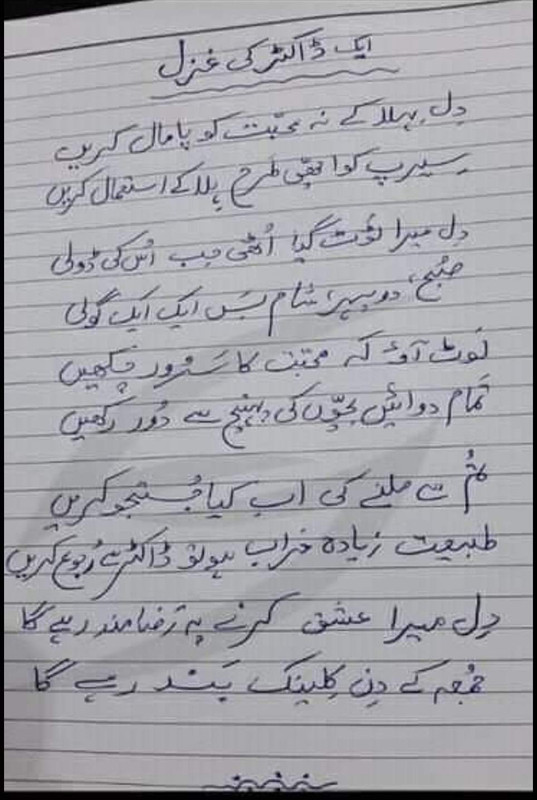 ایک ڈاکٹر کی غزل
دِل بہلا کے نہ محبّت کو پامال کریں
سیرپ کو اچھی طرح ہِلا کے استعمال کریں
دِل میرا ٹوٹ گیا اُٹھی جب اُس کی ڈولی
صُبح، دوپہر، شام بَس ایک ایک گولی
لَوٹ آؤ کہ محبّت کا سَرُور چکھیں
تَمام دوائیں بچّوں کی پہنچ سے دُور رکھیں
تُم سے ملنے کی اب کیا جُستجو کریں
طبیعت زیادہ خراب ہو تو ڈاکٹر سے رُجوع کریں
دِل میرا عشق کرنے پہ رَضامند رہے گا
جُمعہ کے دِن کِلینک بَند رہے گا